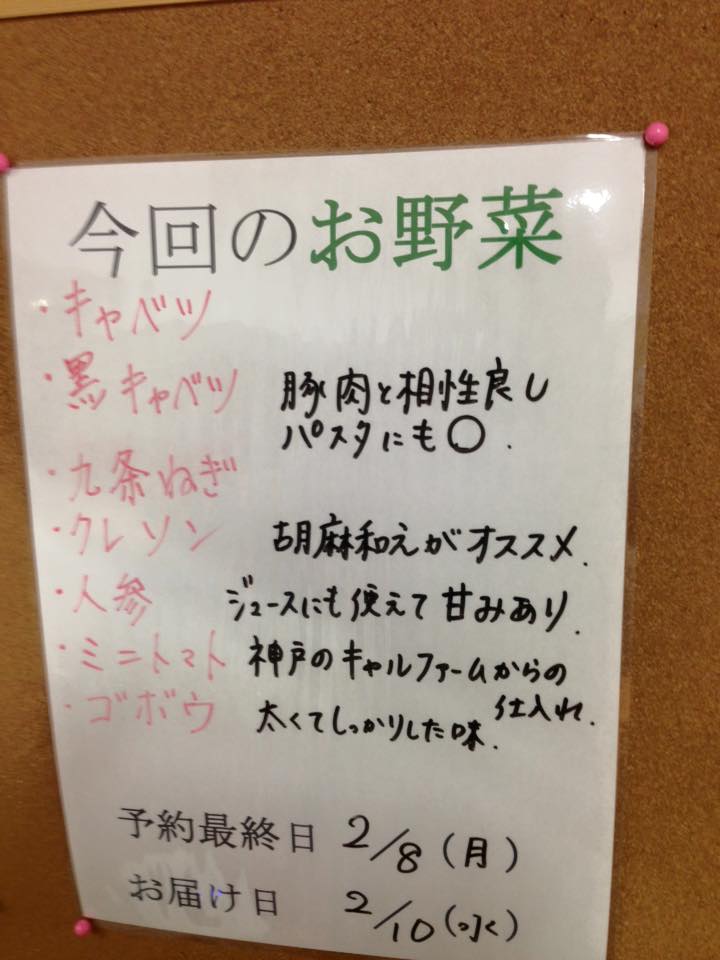 今回のお野菜
・キャベツ
・黒キャベツ 豚肉と相性良し
パスタにも〇.
・九条ねぎ
・クレソン 胡麻和えがオススメ.
・人参 ジュースにも使えて甘みあり.
・ミニトマト 神戸のキャルファームからの
仕入れ.
・ゴボウ 太くてしっかりした味.
予約最終日 2/8(月)
お届け日 2/10(水)